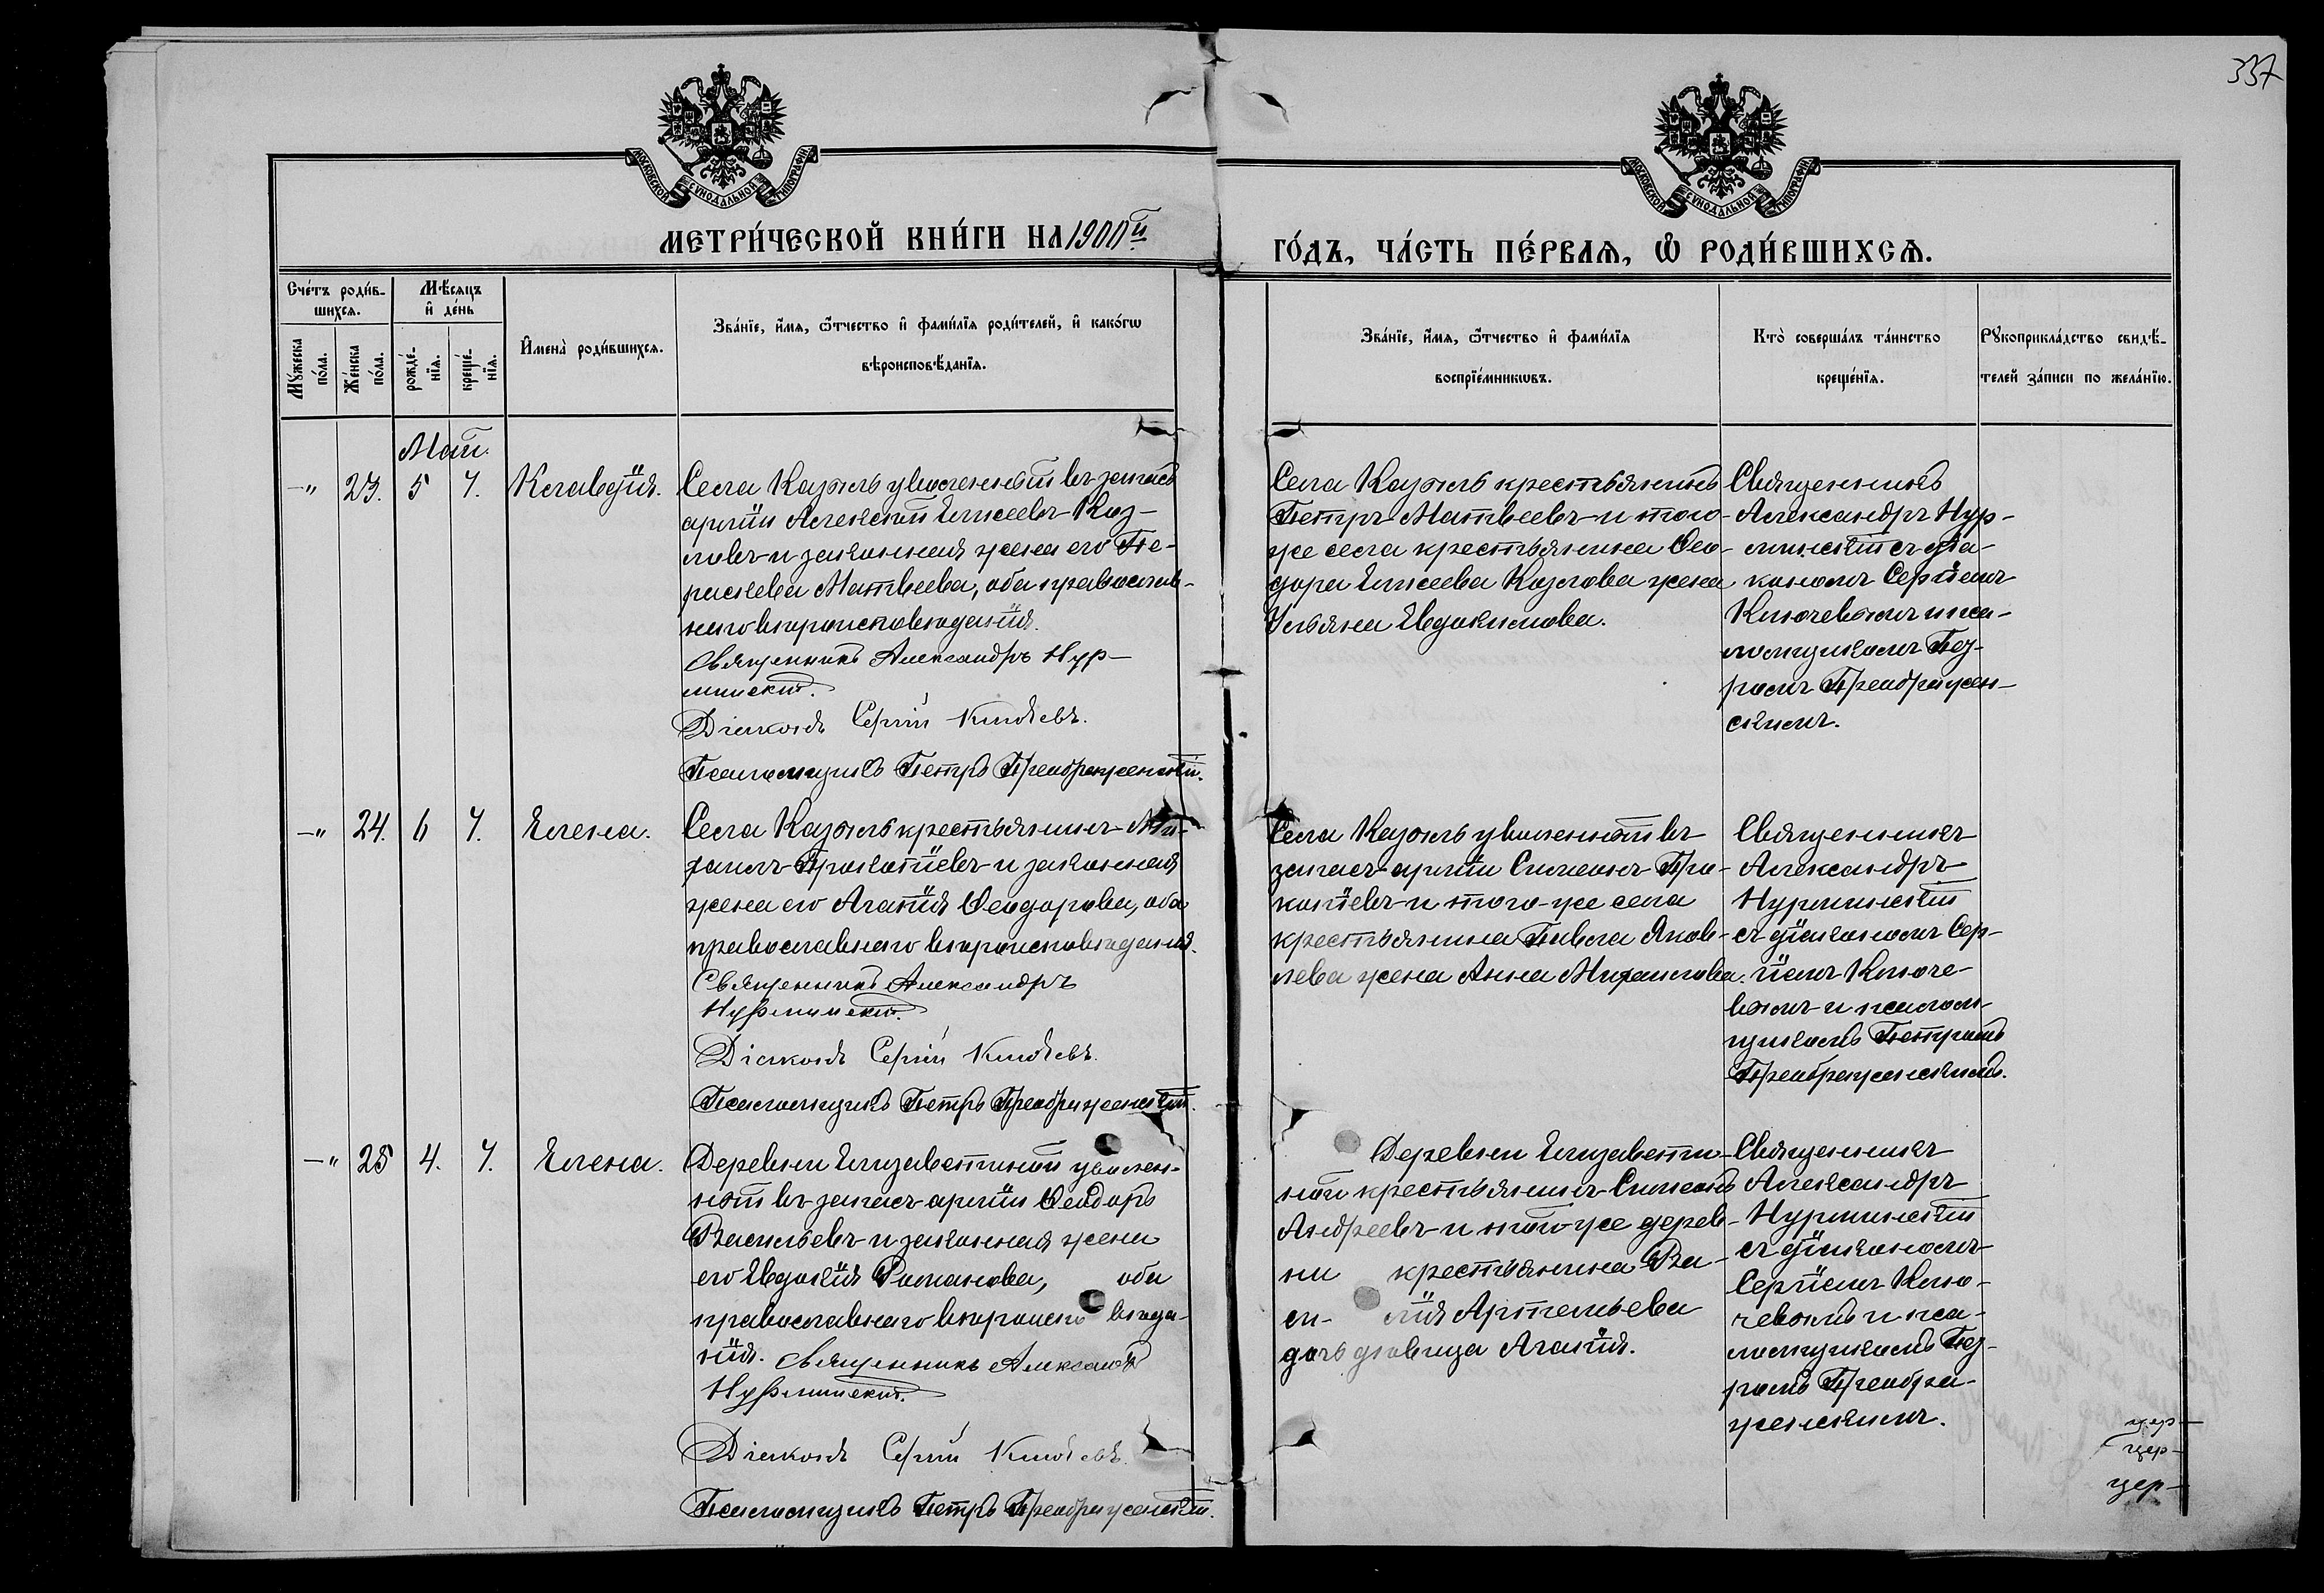 337
МОСКОВСКОЙ СѴНОДАЛЬНОЙ ТИПОГРАФІИ
МОСКОВСКОЙ СѴНОДАЛЬНОЙ ТИПОГРАФІИ
МЕТРИ́ЧЕСКОЙ КНИ́ГИ НА 1900й
ГО́ДЪ, ЧА́СТЬ ПЕ́РВАѦ, Ѡ РОДИ́ВШИХСѦ.
Сче́тъ роди́в-
шихсѧ.
Мѣ́сѧцъ
и де́нь
Мꙋ́жеска по́ла.
Же́нска по́ла.
рожде́-
нїѧ.
креще́-
нїѧ.
Имена̀ роди́вшихсѧ.
Зва́нїе, и́мѧ, ѻ́тчество и фами́лїѧ роди́телей, и како́гѡ
вѣроисповѣ́данїѧ.
Зва́нїе, и́мѧ, ѻ́тчество и фами́лїѧ
воспрїе́мникѡвъ.
Кто̀ соверша́лъ та́инство
креще́нїѧ.
Рꙋкоприкла́дство свидѣ́-
телей за́писи по жела́нїю.
Май.
—„ 23. 5 7. Клавдія.
Села Кажиль уволенный въ запасъ
арміи Алексей Елисеевъ Коз-
ловъ и законная жена его Пе-
раскева Матвеева, оба православ-
наго вѣроисповѣданія.
Священникъ Александръ Нур-
минскій.
Діаконъ Сергій Ключевъ.
Псаломщикъ Петръ Преображенскій.
Села Кажиль крестьянинъ
Петръ Матвеевъ и того-
же села крестьянина Ѳео-
дора Елисеева Козлова жена
Ульяна Евдокимова.
Священникъ
Александръ Нур-
минскій съ діа-
кономъ Сергіемъ
Ключевымъ и пса-
ломщикомъ Пет-
ромъ Преображен-
скимъ.
—„ 24. 6 7. Елена.
Села Кажиль крестьянинъ Ми-
хаилъ Прокопіевъ и законная
жена его Агапія Ѳеодорова, оба
православнаго вѣроисповѣданія.
Священникъ Александръ
Нурминскій.
Діаконъ Сергій Ключевъ.
Псаломщикъ Петръ Преображенскій.
Села Кажиль уволенный въ
запасъ арміи Симеонъ Про-
копіевъ и того-же села
крестьянина Павла Яков-
лева жена Анна Михаилова.
Священникъ
Александръ
Нурминскій
съ діакономъ Сер-
гіемъ Ключе-
вымъ и псалом-
щикомъ Петромъ
Преображенскимъ.
—„ 25 4. 7. Елена.
Деревни Елизаветиной уволен-
ный въ запасъ арміи Ѳеодоръ
Васильевъ и законная жена
его Евдокія Романова, оба
православнаго вѣроисповѣда-
нія. Священникъ Александръ
Нурминскій.
Діаконъ Сергій Ключевъ.
Псаломщикъ Петръ Преображенскій.
Деревни Елизавети-
ной крестьянинъ Симеонъ
Андреевъ и той-же дерев-
ни крестьянина Ва-
си- лія Артемьева
дочь дѣвица Агапія.
Священникъ
Александръ
Нурминскій
съ діакономъ
Сергіемъ Клю-
чевымъ и пса-
ломщикомъ Пет-
ромъ Преобра-
женскимъ.
цер-
цер-
цер-